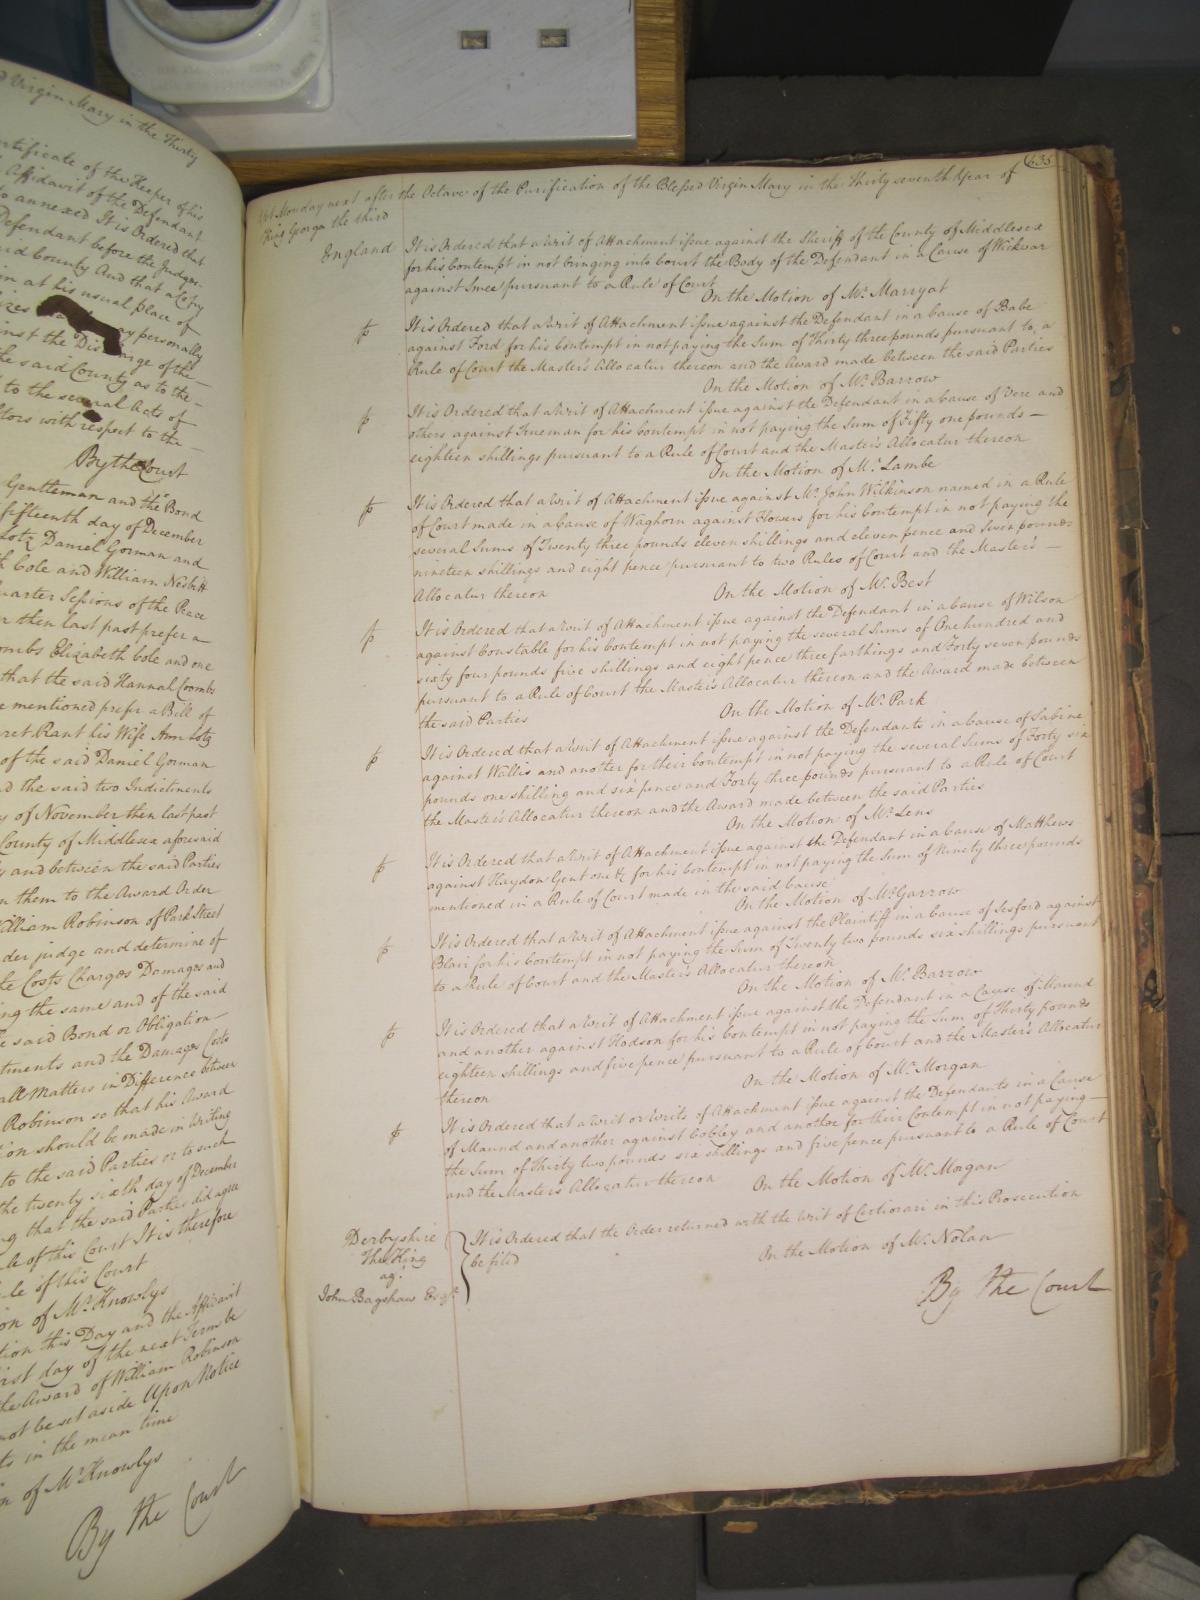 d Virgin Mary in the Thirty
ertificate of the Keeper of his
Affidavit of the Defendant
to annexed It is Ordered that
Defendant before the Judges
said County And that a Copy
in at his usual place of
ay personally
inst the Dis arge of the
the said County as to the
to the several Acts of
itors with respect to the
By the Court
Gentleman and the Bond
fifteenth day of December
Lotz Daniel Gorman and
h Cole and William Nesbitt
uarter Sessions of the Peace
r then last past prefer a
ombs Elizabeth Cole and one
that the said Hannah Coombs
e mentioned prefer a Bill of
ret Rant his Wife Ann Lotz
of the said Daniel Gorman
d the said two Indictments
y of November then last past
County of Middlesex aforesaid
y and between the said Parties
n them to the Award Order
William Robinson of Park Street
der judge and determine of
he Costs Charges Damages and
ing the same and of the said
e said Bond or Obligation
tments and the Damages Costs
all Matters in Difference between
Robinson so that his Award
ion should be made in Writing
to the said Parties or to such
the twenty sixth day of December
ng that the said Parties did agree
le of this Court It is therefore
le of this Court
on of Mr. Knowlys
tion this Day and the Affidavit
irst day of the next Term be
the Award of William Robinson
not be set aside Upon Notice
ts in the mean time
n of Mr. Knowlys
By the Court
635
Monday next after the Octave of the Purification of the Blessed Virgin Mary in the Thirty seventh Year of
King George the third
England It is Ordered that a Writ of Attachment issue against the Sheriff of the County of Middlesex
for his Contempt in not bringing into Court the Body of the Defendant in a Cause of Wickwar
against Smee pursuant to a Rule of Court
On the Motion of Mr. Marryat
It is Ordered that a Writ of Attachment issue against the Defendant in a Cause of Babe
against Ford for his Contempt in not paying the Sum of Thirty three pounds pursuant to a
Rule of Court the Master's Allocatur thereon and the Award made between the said Parties
On the Motion of Mr. Barrow
It is Ordered that a Writ of Attachment issue against the Defendant in a Cause of Vere and
others against Trueman for his Contempt in not paying the Sum of Fifty one pounds
eighteen shillings pursuant to a Rule of Court and the Master's Allocatur thereon
On the Motion of Mr. Lambe
It is Ordered that a Writ of Attachment issue against Mr. John Wilkinson named in a Rule
of Court made in a Cause of Waghorn against Flowers for his Contempt in not paying the
several Sums of Twenty three pounds eleven shillings and eleven pence and Seven pounds
nineteen shillings and eight pence pursuant to two Rules of Court and the Master's
Allocatur thereon On the Motion of Mr. Best
It is Ordered that a Writ of Attachment issue against the Defendant in a Cause of Wilson
against Constable for his Contempt in not paying the several Sums of One hundred and
sixty four pounds five shillings and eight pence three farthings and Forty seven pounds
pursuant to a Rule of Court the Master's Allocatur thereon and the Award made between
the said Parties On the Motion of Mr. Park
It is Ordered that a Writ of Attachment issue against the Defendants in a Cause of Sabine
against Wallis and another for their Contempt in not paying the several Sums of Forty six
pounds one shilling and six pence and Forty three pounds pursuant to a Rule of Court
the Master's Allocatur thereon and the Award made between the said Parties
On the Motion of Mr. Lens
It is Ordered that a Writ of Attachment issue against the Defendant in a Cause of Matthews
against Haydon Gent one &c for his Contempt in not paying the Sum of Ninety three pounds
mentioned in a Rule of Court made in the said Cause
On the Motion of Mr. Garrow
It is Ordered that a Writ of Attachment issue against the Plaintiff in a Cause of Sesford against
Blair for his Contempt in not paying the Sum of Twenty two pounds six shillings pursuant
to a Rule of Court and the Master's Allocatur thereon
On the Motion of Mr. Barrow
It is Ordered that a Writ of Attachment issue against the Defendant in a Cause of Maund
and another against Hodson for his Contempt in not paying the Sum of Thirty pounds
eighteen shillings and five pence pursuant to a Rule of Court and the Master's Allocatur
thereon On the Motion of Mr. Morgan
It is Ordered that a Writ or Writs of Attachment issue against the Defendants in a Cause
of Maund and another against Cobley and another for their Contempt in not paying
the Sum of Thirty two pounds six shillings and five pence pursuant to a Rule of Court
and the Master's Allocatur thereon On the Motion of Mr. Magan
Derbyshire
The King
agt.
John Bagshaw Esqr.
It is Ordered that the Order returned with the Writ of Certiorari in this Prosecution
be filed
On the Motion of Mr. Nolan
By the Court